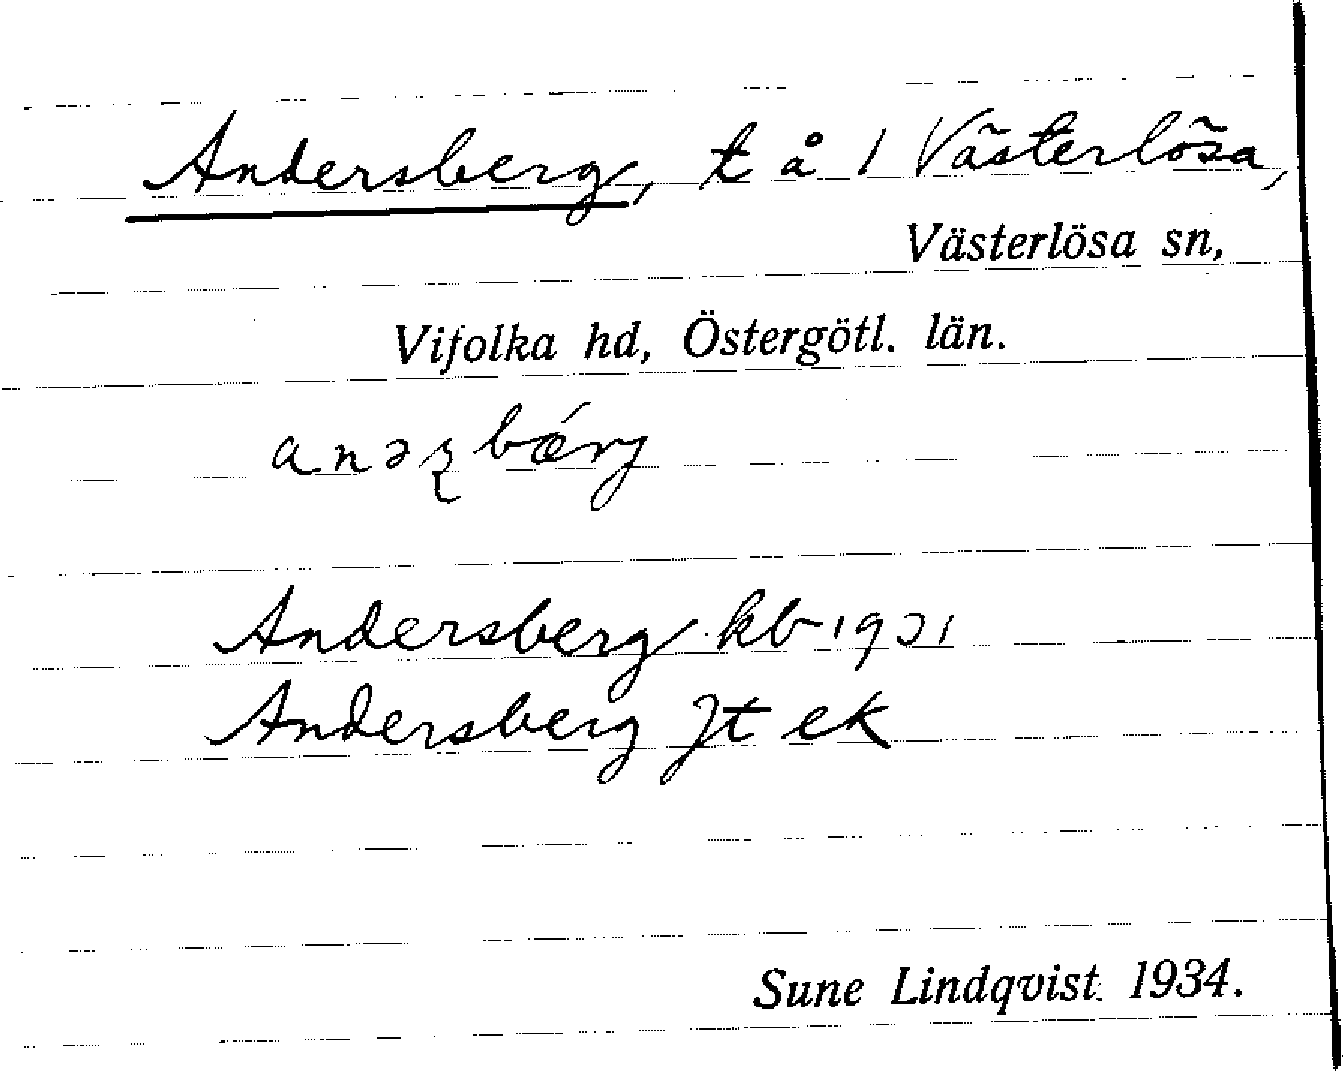 Andersberg, t å 1 Västerlösa,
Västerlösa sn,
Vifolka hd, Östergötl. län.
anəʂbǽrj
Andersberg kb 1921
Andersberg Jt ek
Sune Lindqvist 1934.